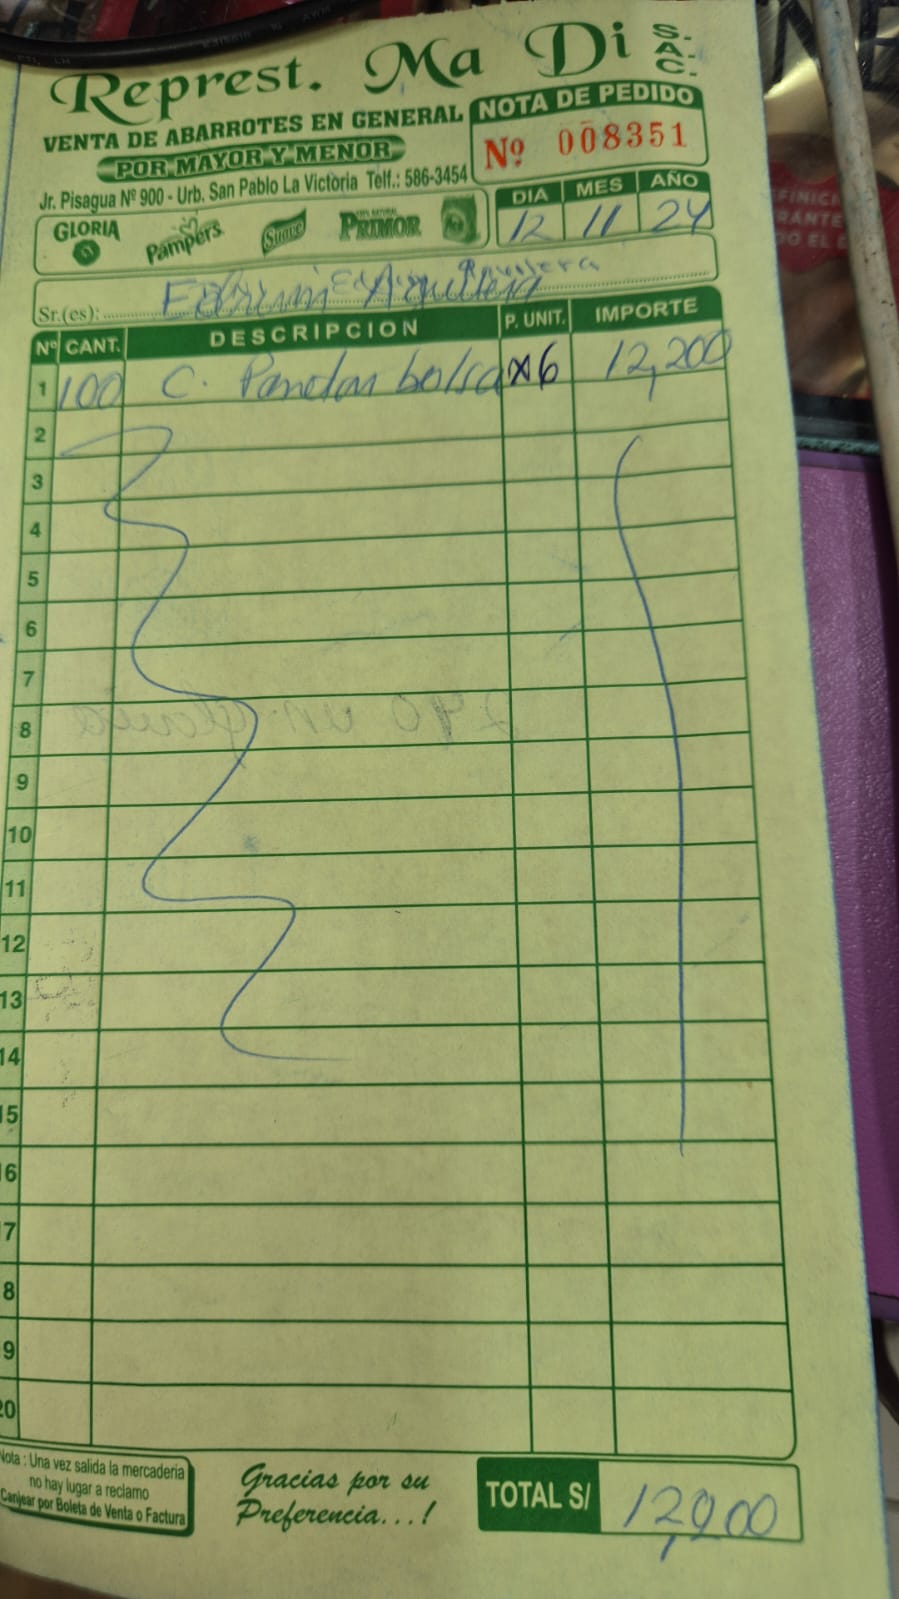 Represt. Ma Di S.A.C.
VENTA DE ABARROTES EN GENERAL
POR MAYOR Y MENOR
Jr. Pisagua Nº 900 - Urb. San Pablo La Victoria Telf.: 586-3454
NOTA DE PEDIDO
Nº 008351
DIA MES AÑO
12 11 24
GLORIA Pampers Suave PRIMOR
Sr.(es):
Nº CANT. DESCRIPCION P. UNIT. IMPORTE
1 100 C. Paneton bolsa x6 12,200
2
3
4
5
6
7
8
9
10
11
12
13
14
15
16
17
18
19
20
Nota : Una vez salida la mercaderia
no hay lugar a reclamo
Canjear por Boleta de Venta o Factura
Gracias por su
Preferencia...!
TOTAL S/